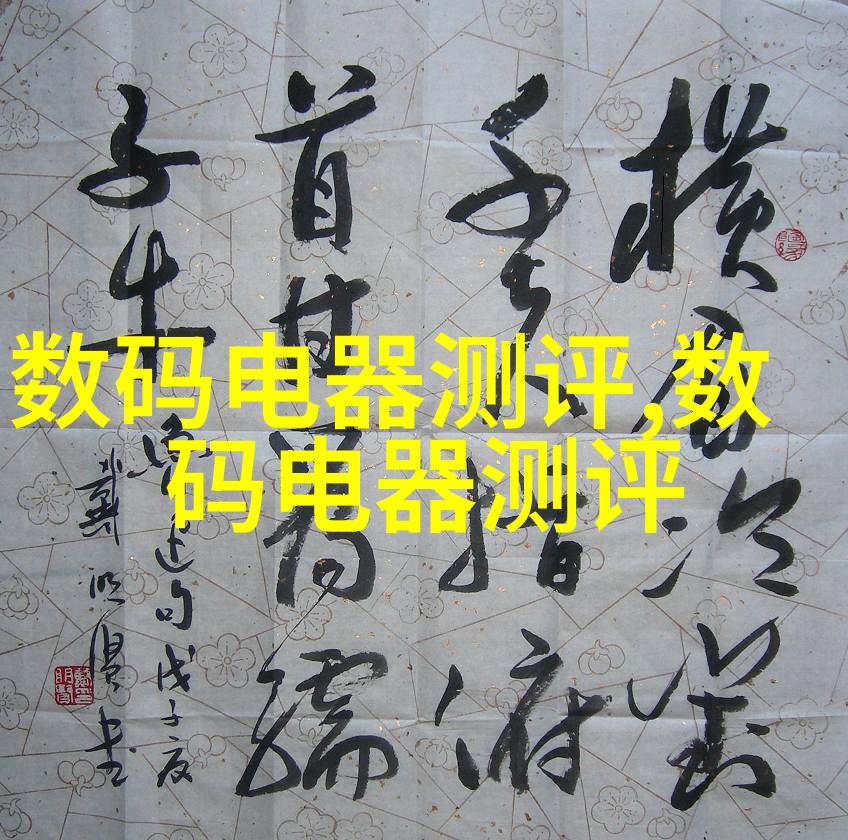 数码电器测评,数
码电器测评
横眉冷對
千夫指俯
首甘为孺
子牛
迅句戊子夏
戴明